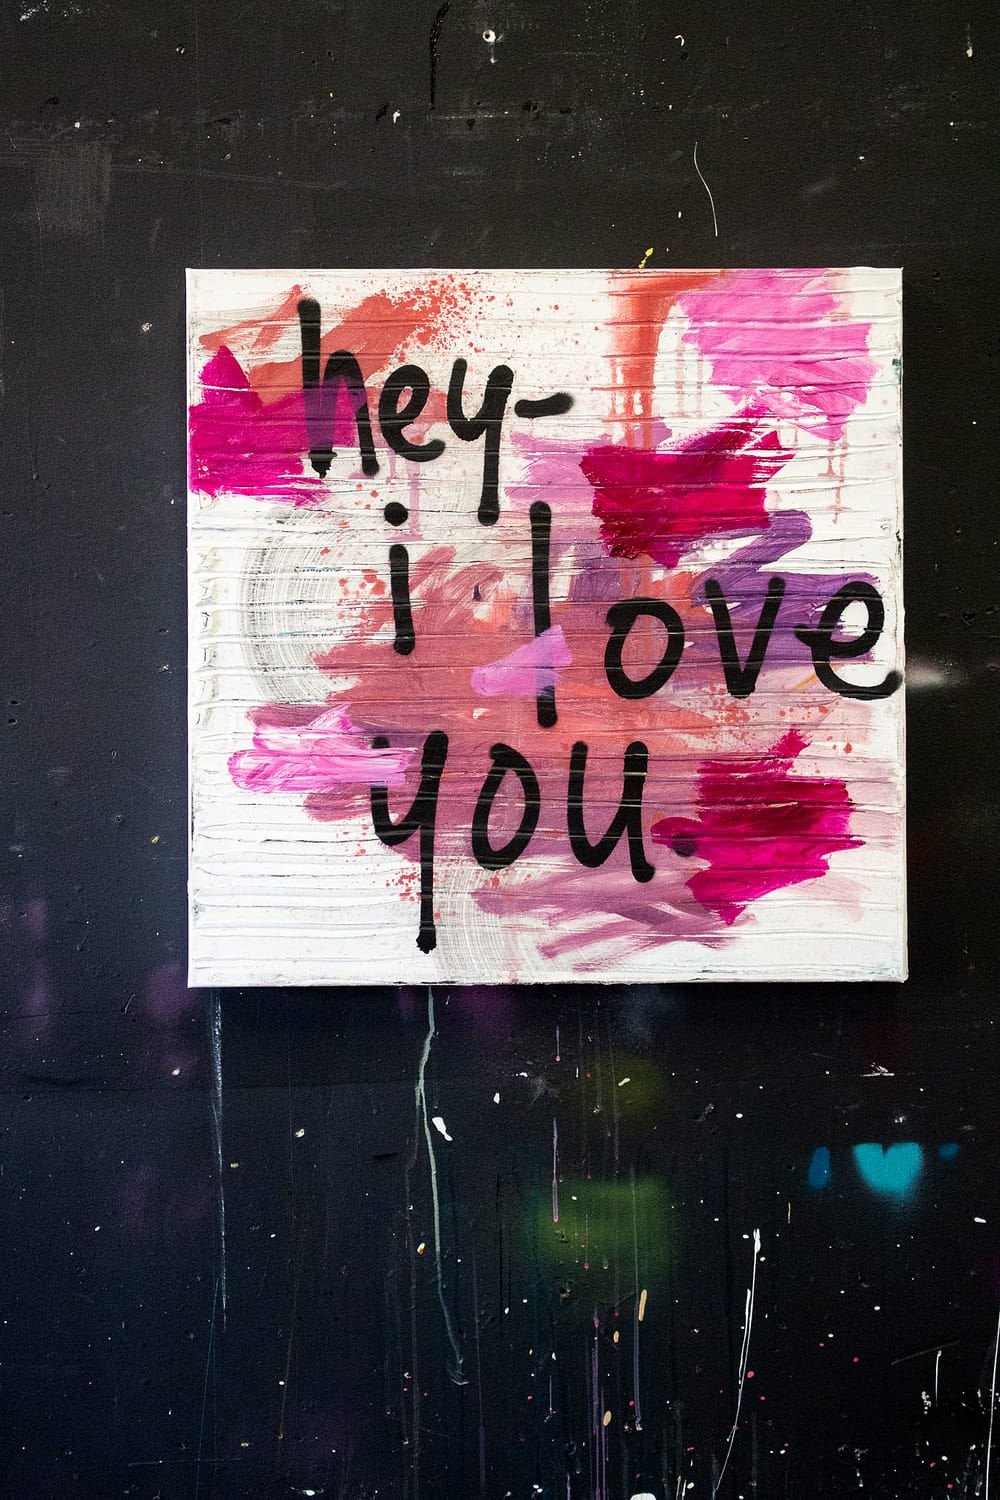 hey-
i love
you.